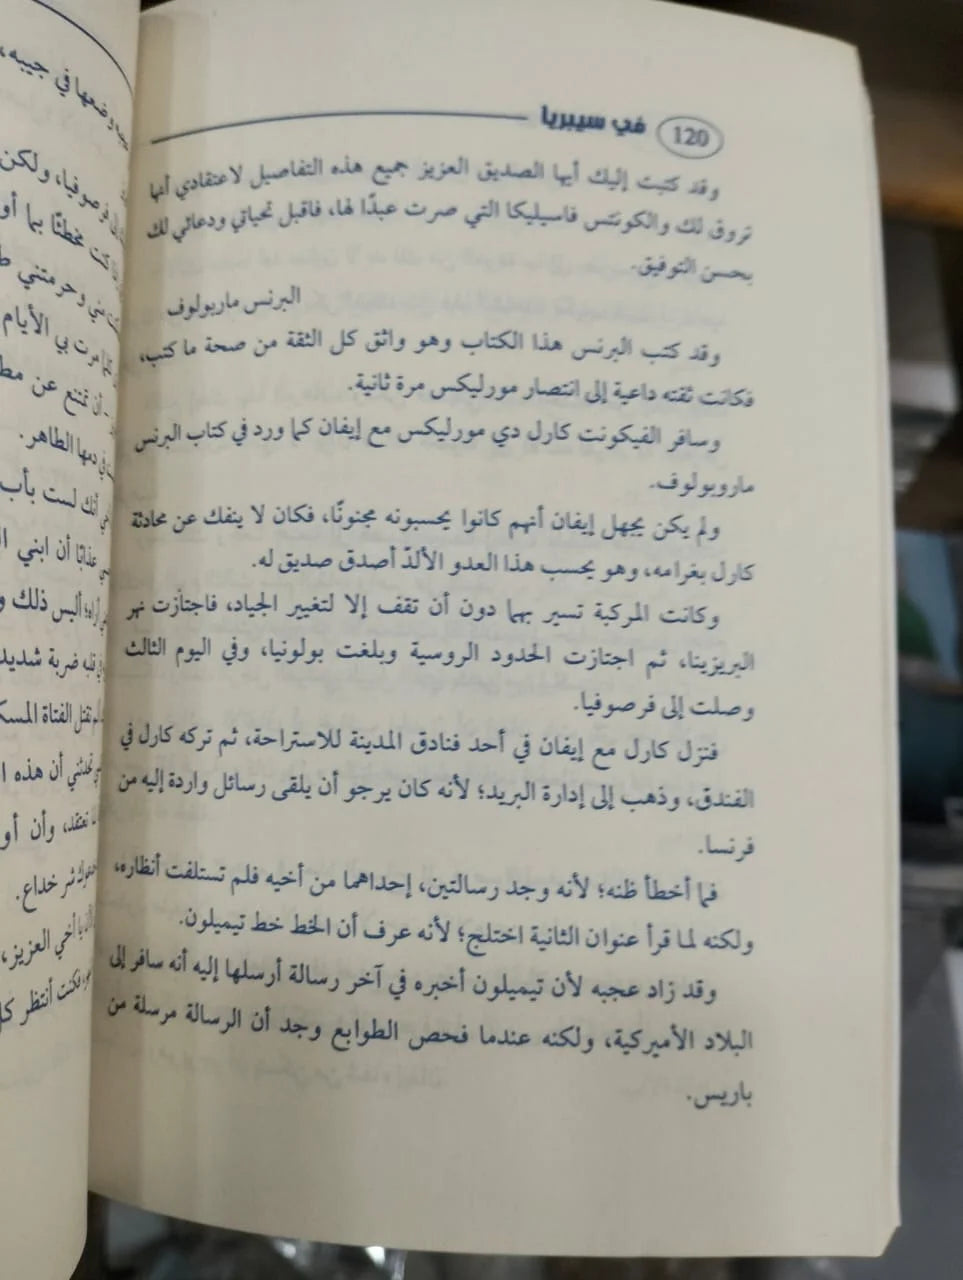 120
في سيبريا
وقد كتبت إليك أيها الصديق العزيز جميع هذه التفاصيل لاعتقادي أنها
تروق لك والكونتس فاسيليكا التي صرت عبدًا لها، فاقبل تحياتي ودعائي لك
بحسن التوفيق.
البرنس ماربولوف
وقد كتب البرنس هذا الكتاب وهو واثق كل الثقة من صحة ما كتب،
فكانت ثقته داعية إلى انتصار مورليكس مرة ثانية.
وسافر الفيكونت كارل دي مورليكس مع إيفان كما ورد في كتاب البرنس
ماروبولوف.
ولم يكن يجهل إيفان أنهم كانوا يحسبونه مجنونًا، فكان لا ينفك عن محادثة
كارل بغرامه، وهو يحسب هذا العدو الألدّ أصدق صديق له.
وكانت المركبة تسير بهما دون أن تقف إلا لتغيير الجياد، فاجتازت نهر
البريزينا، ثم اجتازت الحدود الروسية وبلغت بولونيا، وفي اليوم الثالث
وصلت إلى فرصوفيا.
فنزل كارل مع إيفان في أحد فنادق المدينة للاستراحة، ثم تركه كارل في
الفندق، وذهب إلى إدارة البريد؛ لأنه كان يرجو أن يلقى رسائل واردة إليه من
فرنسا.
فما أخطأ ظنه؛ لأنه وجد رسالتين، إحداهما من أخيه فلم تستلفت أنظاره،
ولكنه لما قرأ عنوان الثانية اختلج؛ لأنه عرف أن الخط خط تيميلون.
وقد زاد عجبه لأن تيميلون أخبره في آخر رسالة أرسلها إليه أنه سافر إلى
البلاد الأميركية، ولكنه عندما فحص الطوابع وجد أن الرسالة مرسلة من
باريس.
وضعها في جيبه،
فرصوفيا، ولكن
كنت مخطئًا بما أو
مني وحرمتني
مرت بي الأيام
أن تمتنع عن
في دمها الطاهر.
أنك لست بأب
عذابًا أن ابني
أليس ذلك و
قلبه ضربة شديد
تقتل الفتاة المسك
تحدثني أن هذه ا
نعتقد، وأن أو
شر خداع.
يا أخي العزيز،
فكنت أنتظر كل